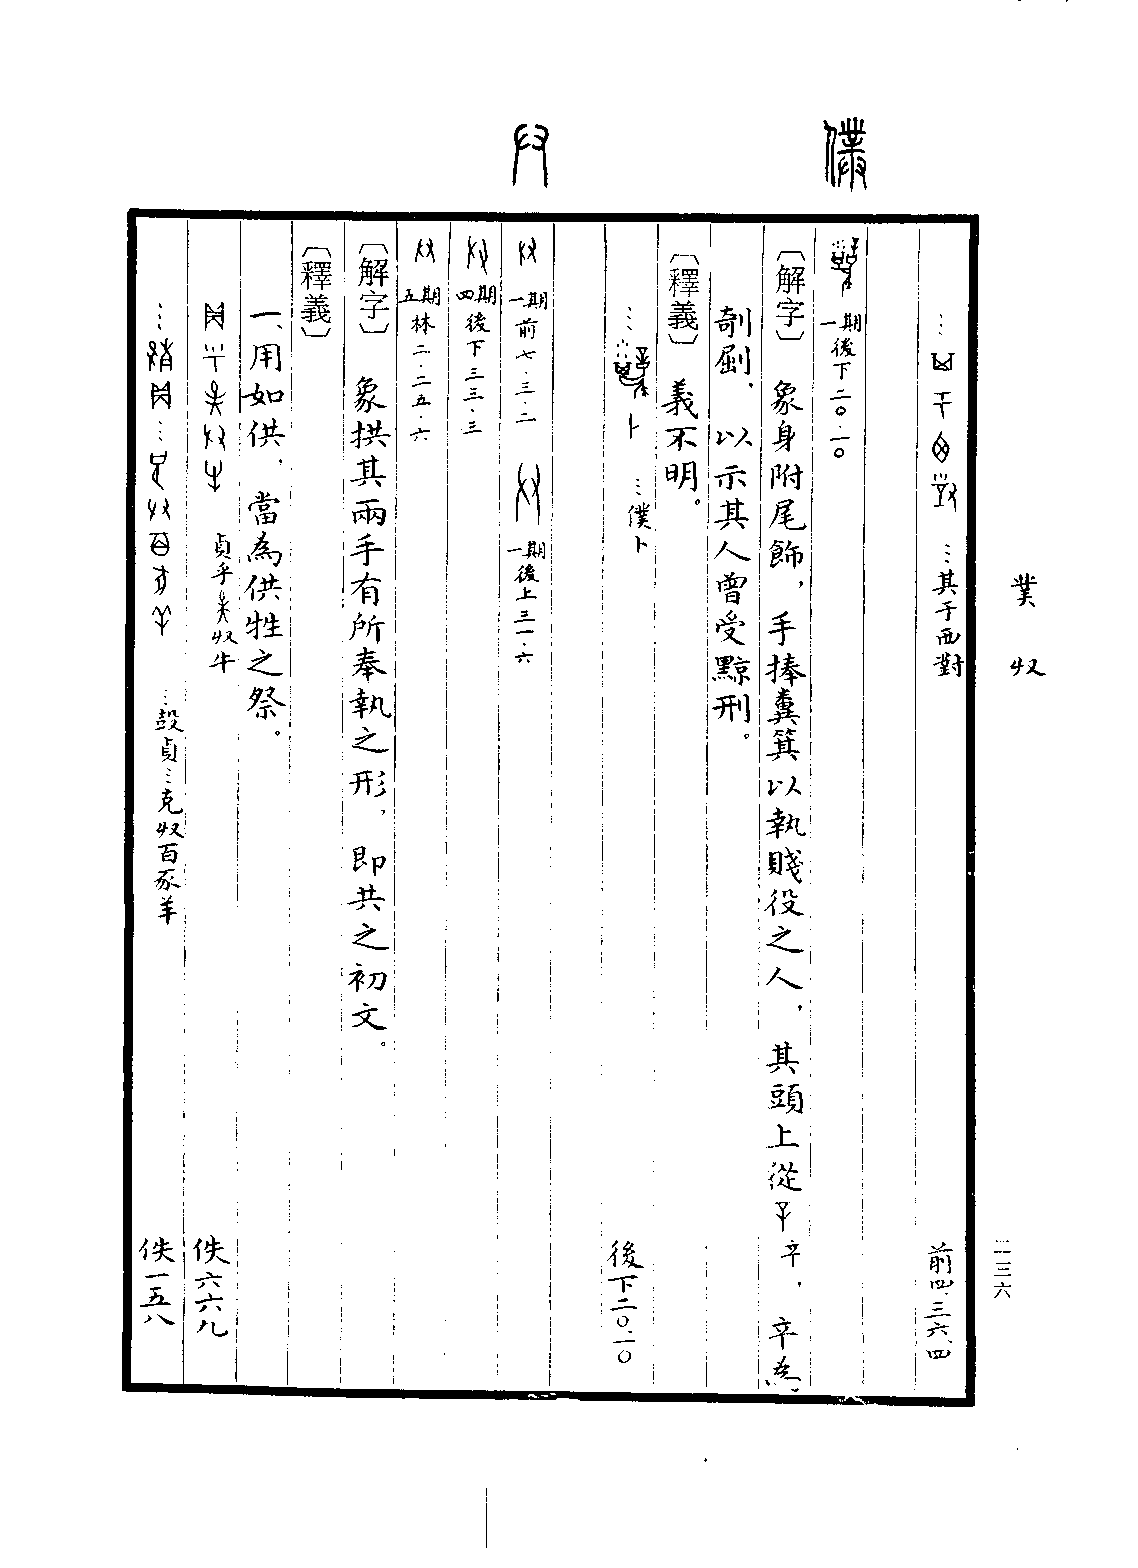 菐 𠬞
二三六
…其于西對 前四.三六.四
僕
一期 後下二〇.一〇
〔解字〕 象身附尾飾，手捧糞箕以執賤役之人，其頭上從辛，辛為
剞劂，以示其人曾受黥刑。
〔釋義〕 義不明。
…僕卜 後下二〇.一〇
𠬞
一期 前七.三.二 一期 後上三一.六
四期 後下三三.三
五期 林二.二五.六
〔解字〕 象拱其兩手有所奉執之形，即共之初文。
〔釋義〕
一、用如供，當為供牲之祭。
貞乎𠬞牛 佚六六八
…㱿貞…克𠬞百豕羊 佚一五八